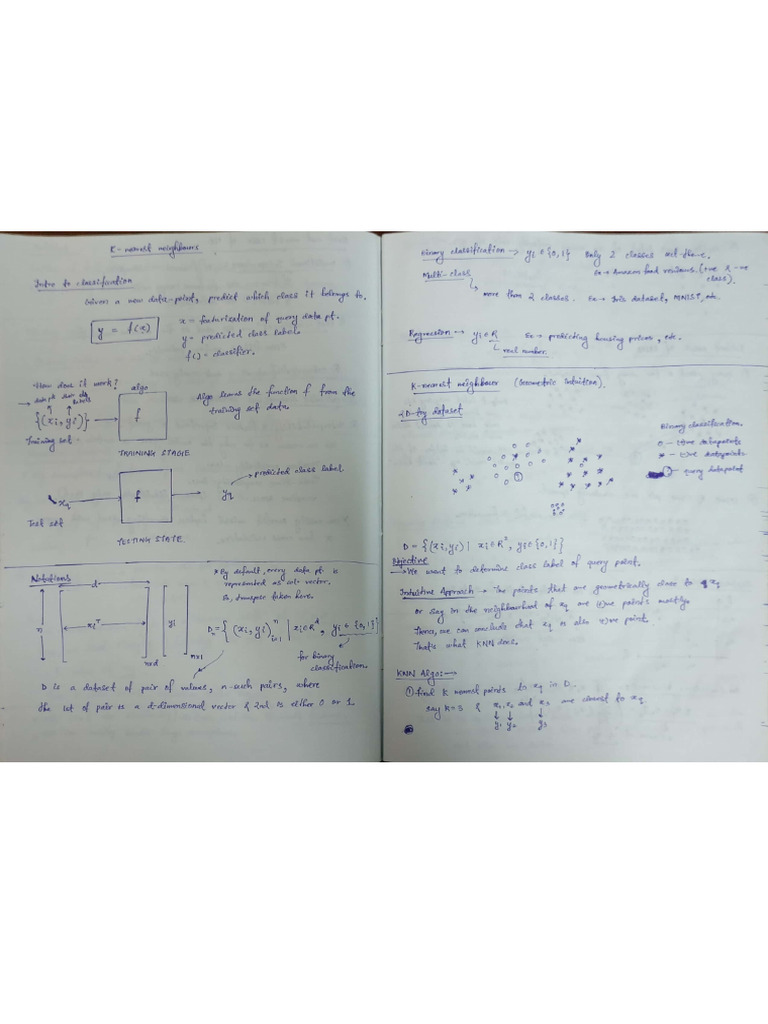 K-nearest neighbours
Intro to classification
Given a new data-point, predict which class it belongs to.
y = f(x)
x = featurization of query data pt.
y = predicted class label.
f() = classifier.
How does it work?
{(xi, yi)}
Training set
algo
f
TRAINING STAGE
Algo learns the function f from the
training set data.
xq
Test set
f
yq
predicted class label.
TESTING STATE
Notations
d
n
xiᵀ
nxd
yi
nx1
* By default, every data pt is
represented as col. vector.
So, transpose taken here.
Dn = { (xi, yi)ⁿi=1 | xi ∈ Rᵈ, yi ∈ {0,1} }
for binary
classification.
D is a dataset of pair of values, n-such pairs, where
the 1st of pair is a d-dimensional vector & 2nd is either 0 or 1.
Binary classification → yi ∈ {0,1} Only 2 classes are there.
Ex → Amazon food reviews. (+ve & -ve
class).
Multi-class
more than 2 classes. Ex → Iris dataset, MNIST, etc.
Regression → yi ∈ R Ex → predicting housing prices, etc.
real number.
K-nearest neighbour (Geometric intuition).
2D-toy dataset
Binary classification.
o - (+)ve datapoints
* - (-)ve datapoints
- query datapoint
D = {(xi, yi) | xi ∈ R², yi ∈ {0,1}}
Objective
→ We want to determine class label of query point.
Intuitive Approach → The points that are geometrically close to xq
or say in the neighbourhood of xq are (+)ve points mostly
Thence, we can conclude that xq is also (+)ve point.
That's what KNN does.
KNN Algo:→
① find K nearest points to xq in D.
say K=3 & x1, x2 and x3 are closest to xq.
↓ ↓ ↓
y1 y2 y3